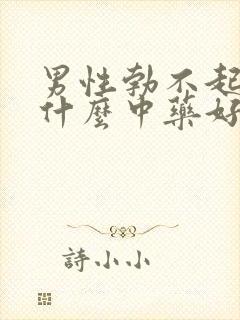 男性勃不起
什麼中藥好
詩小小